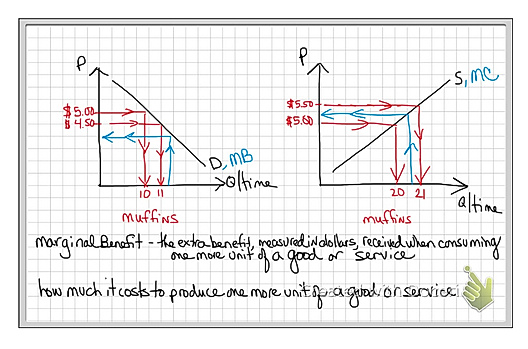 P
$5.00
$4.50
D, MB
10 11
Q/time
muffins
P
S, MC
$5.50
$5.00
20 21
Q/time
muffins
marginal Benefit - the extra benefit, measured in dollars, received when consuming
one more unit of a good or service
how much it costs to produce one more unit of a good or service